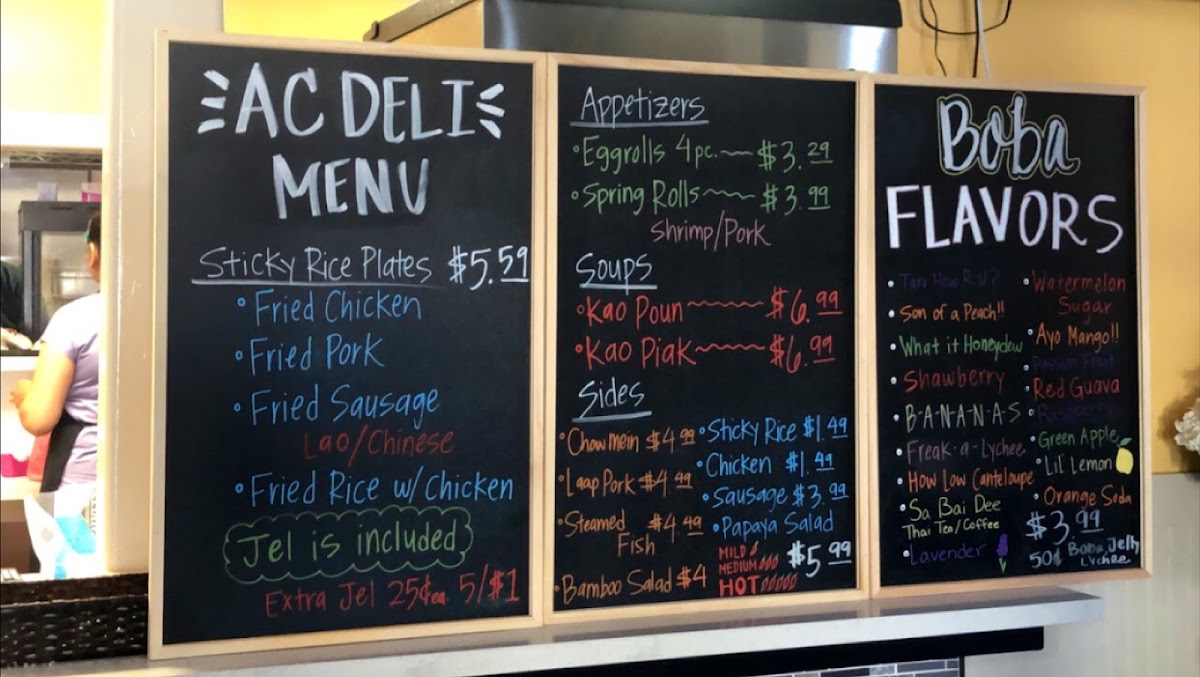 AC DELI
MENU
Sticky Rice Plates $5.59
• Fried Chicken
• Fried Pork
• Fried Sausage
Lao/Chinese
• Fried Rice w/ Chicken
Jel is included
Extra Jel 25¢ea. 5/$1
Appetizers
• Eggrolls 4pc. $3.29
• Spring Rolls $3.99
Shrimp/Pork
Soups
• Kao Poun $6.99
• Kao Piak $6.99
Sides
• Chow mein $4.99
• Laap Pork $4.99
• Steamed $4.49
Fish
• Bamboo Salad $4
• Sticky Rice $1.49
• Chicken $1.49
• Sausage $3.99
• Papaya Salad
MILD
MEDIUM $5.99
HOT
Boba
FLAVORS
• Taro How R U?
• Son of a Peach!!
• What it Honeydew
• Shawberry
• B-A-N-A-N-A-S
• Freak-a-Lychee
• How Low Canteloupe
• Sa Bai Dee
Thai Tea/Coffee
• Lavender
• Watermelon
Sugar
• Ayo Mango!!
• Passion Fruit
• Red Guava
• Raspberry
• Green Apple
• Lil' Lemon
• Orange Soda
$3.99
50¢ Boba, Jelly
Lychee